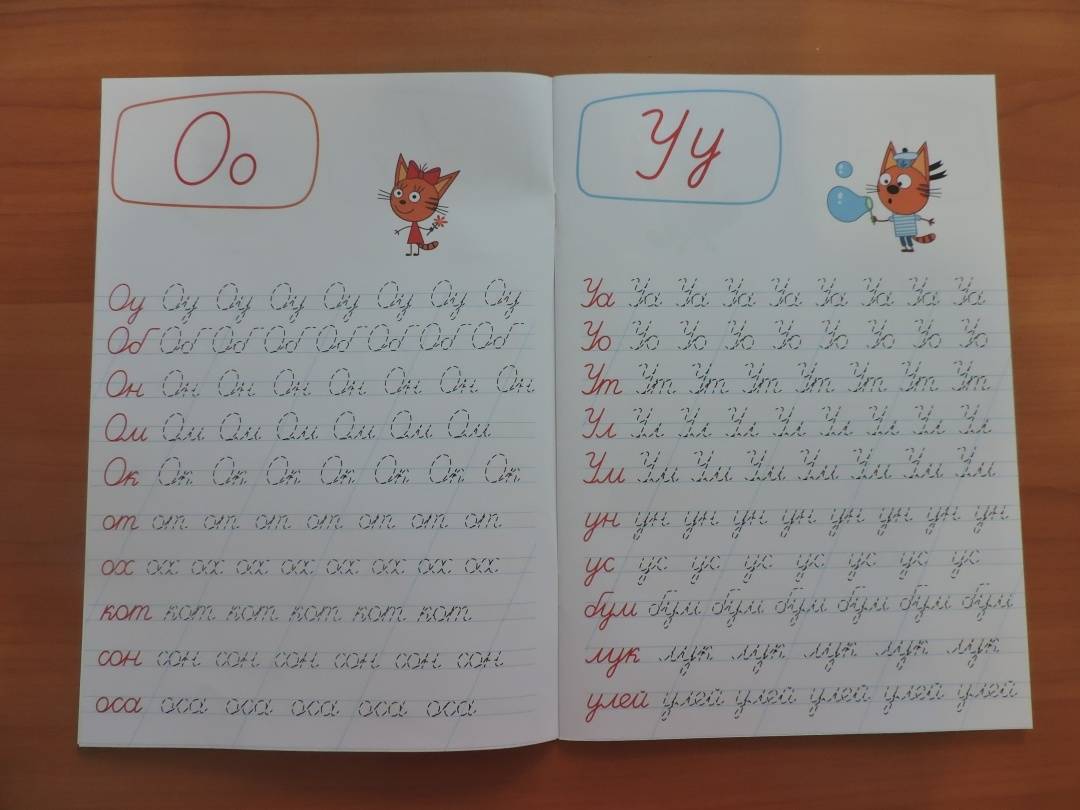 Оо
Оу Оу Оу Оу Оу Оу Оу Оу
Об Об Об Об Об Об Об Об
Он Он Он Он Он Он Он Он
Ом Ом Ом Ом Ом Ом Ом
Ок Ок Ок Ок Ок Ок Ок Ок
от от от от от от от от
ох ох ох ох ох ох ох ох ох
кот кот кот кот кот кот
сон сон сон сон сон сон сон
оса оса оса оса оса оса
Уу
Уа Уа Уа Уа Уа Уа Уа Уа Уа
Уо Уо Уо Уо Уо Уо Уо Уо Уо
Ут Ут Ут Ут Ут Ут Ут Ут
Ул Ул Ул Ул Ул Ул Ул Ул Ул
Ум Ум Ум Ум Ум Ум Ум Ум
ун ун ун ун ун ун ун ун ун
ус ус ус ус ус ус ус ус
бум бум бум бум бум бум бум
лук лук лук лук лук лук
улей улей улей улей улей улей